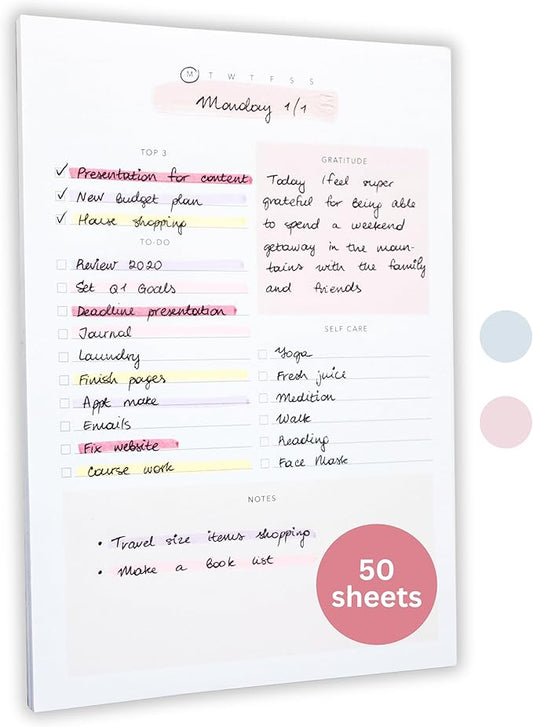 M T W T F S S
Monday 1/1
TOP 3
Presentation for content
New Budget plan
House shopping
TO-DO
Review 2020
Set Q1 Goals
Deadline presentation
Journal
Laundry
Finish pages
Appt make
Emails
Fix website
Course work
GRATITUDE
Today I feel super
grateful for Being able
to spend a weekend
getaway in the moun-
tains with the family
and friends
SELF CARE
Yoga
Fresh juice
Medition
Walk
Reading
Face Mask
NOTES
• Travel size items shopping
• Make a Book list
50
sheets